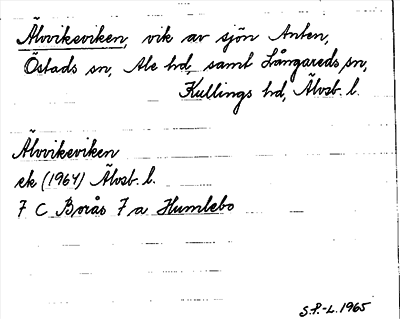 Älvviksviken, vik av sjön Anten,
Östads sn, Ale hd, samt Långareds sn,
Kullings hd, Älvsb. l.
Älvviksviken
ek (1964) Älvsb. l.
7 C Borås 7 a Humlebo
S.P.-L. 1965